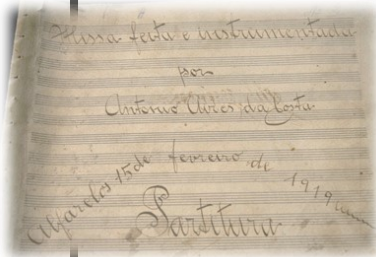 Missa feita e instrumentada
por
Antonio Aires da Costa
Alfarelos 15 de fevreiro de 1919
Partitura